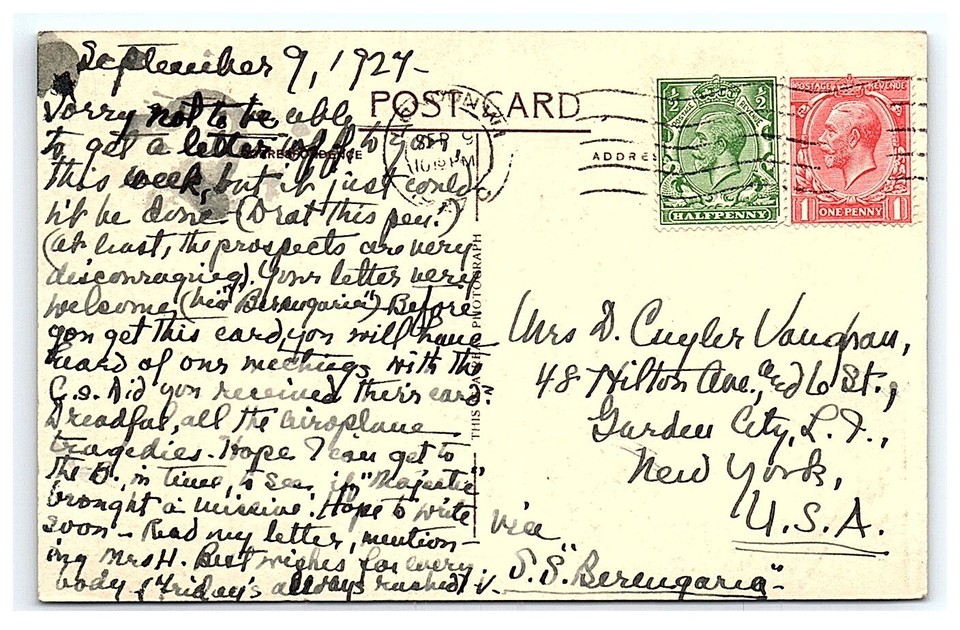 September 9, 1927 -
Sorry not to be able
to get a letter off to you,
this week, but it just could
n't be done - (Drat this pen!)
(at least, the prospects are very
discouraging). Your letter very
welcome (via "Berengaria") Before
you get this card, you will have
heard of our meetings with the
C.s. Did you received their card.
Dreadful, all the airoplane
tragedies. Hope I can get to
the B., in time, to see if "Majestic"
brought a missive. Hope to write
soon - Read my letter, mention-
ing Mrs H. Best wishes for every
body. (Friday's always rushed) V.
POST CARD
CORRESPONDENCE
ADDRES
THIS IS A REAL PHOTOGRAPH
SEP 9
PM
POSTAGE REVENUE
½ ½
HALFPENNY
POSTAGE REVENUE
1 ONE PENNY 1
Mrs D. Cuyler Vaughan,
48 Hilton Ave., & 6 St.,
Garden City, L. I.,
New York,
U.S.A.
via
S.S. "Berengaria"-